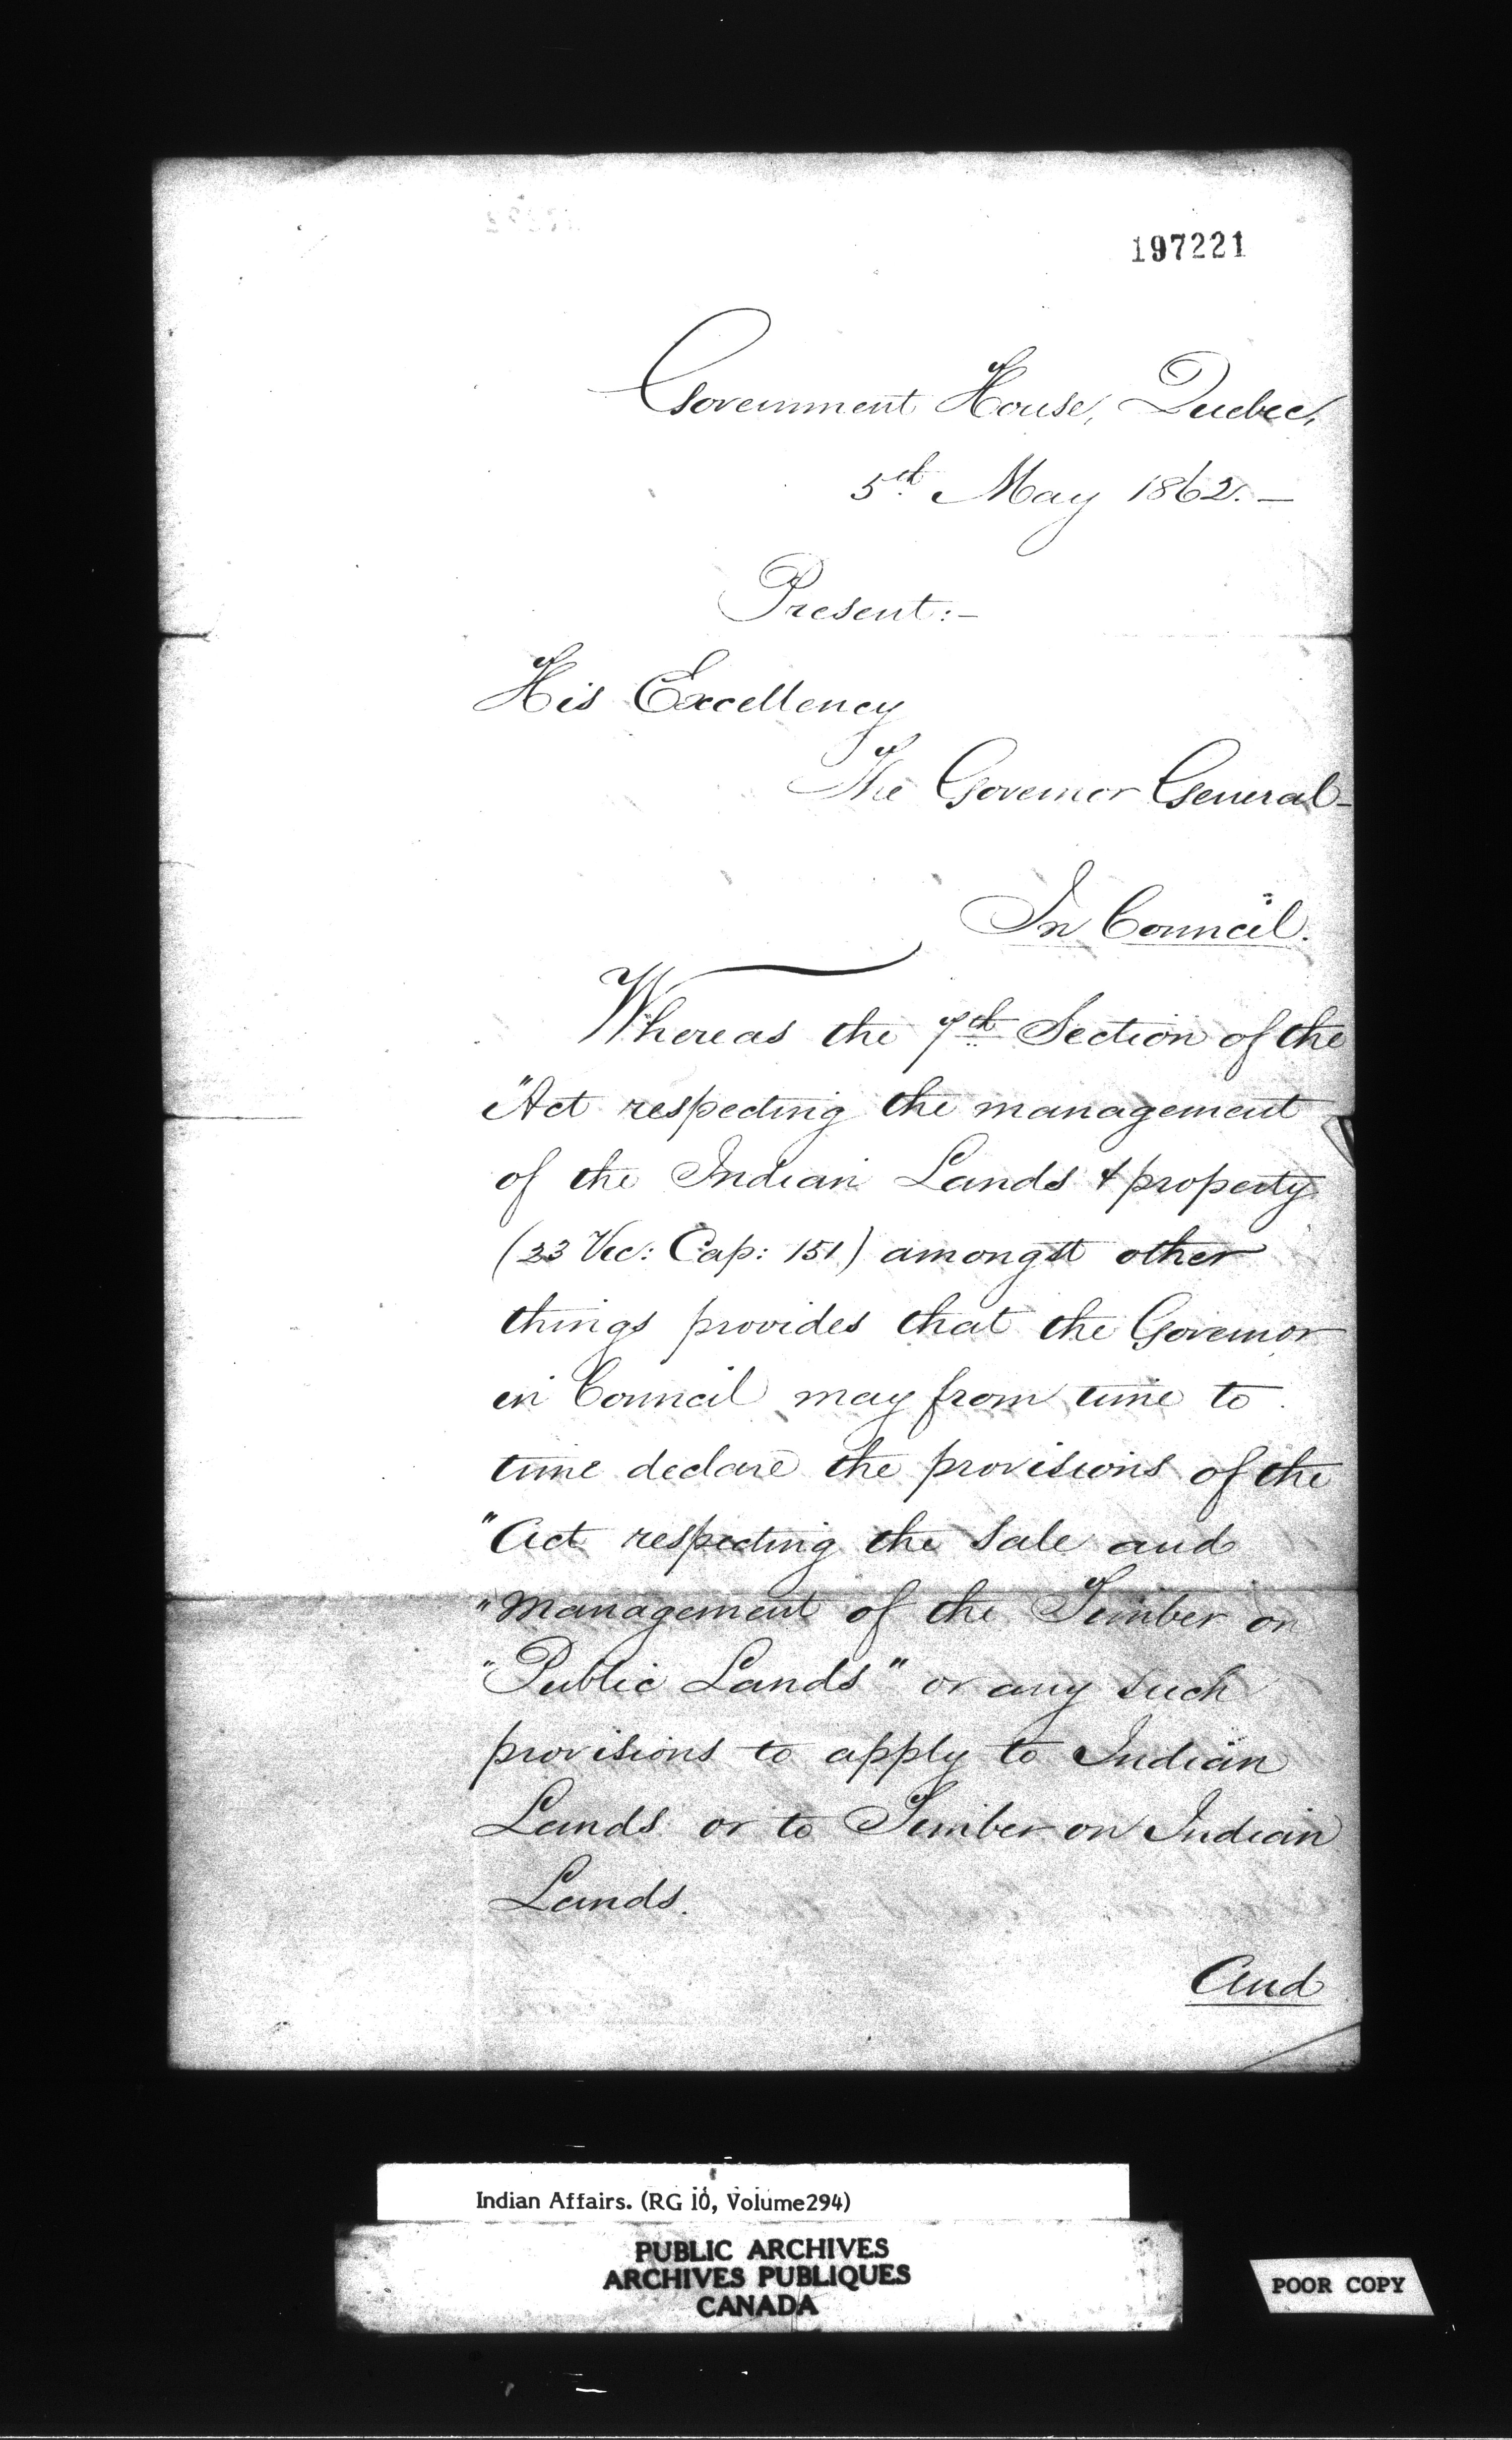 197221
Government House, Quebec,
5th May 1862.—
Present:—
His Excellency
The Governor General—
In Council.
Whereas the 7th Section of the
"Act respecting the management
of the Indian Lands & property
(23 Vic: Cap: 151) amongst other
things provides that the Governor
in Council may from time to
time declare the provisions of the
"Act respecting the Sale and
"Management of the Timber on
"Public Lands" or any such
provisions to apply to Indian
Lands or to Timber on Indian
Lands.
And
Indian Affairs. (RG 10, Volume294)
PUBLIC ARCHIVES
ARCHIVES PUBLIQUES
CANADA
POOR COPY